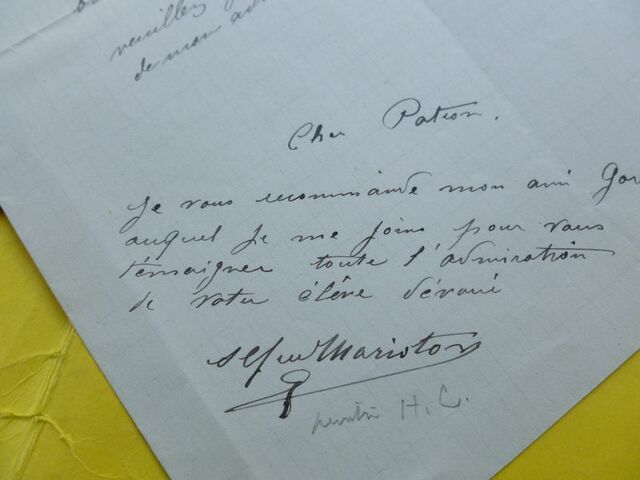 veuillez
de mon
Cher Patron,
Je vous recommande mon ami Gar
auquel je me joins pour vous
témoigner toute l'admiration
de votre élève dévoué
Alfred Marioton
peintre H.C.